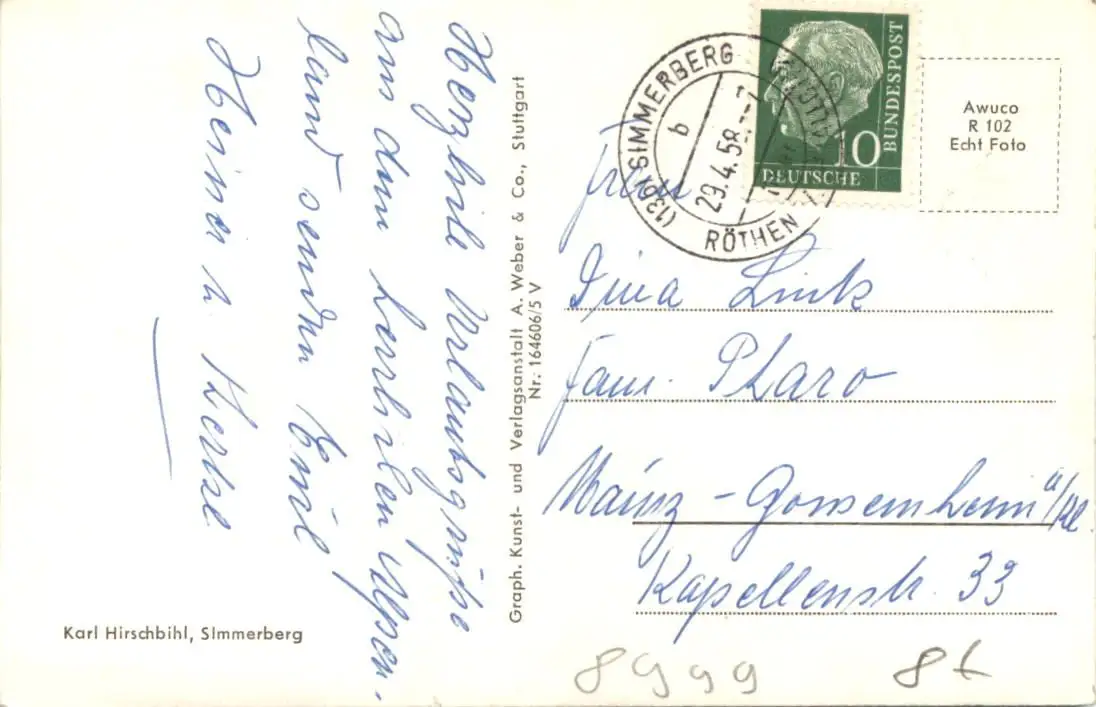 Herzliche Urlaubsgrüße
aus dem herrlichen Alpen-
land senden Emil
Heiner u.
Karl Hirschbihl, Simmerberg
Graph. Kunst- und Verlagsanstalt A. Weber & Co., Stuttgart
Nr. 164606/5 V
(13b) SIMMERBERG
b
29.4.58
RÖTHEN
10
DEUTSCHE
BUNDESPOST
Awuco
R 102
Echt Foto
Frau
Tina Link
Fam. Pharo
Mainz-Gonsenheim a/Rh
Kapellenstr. 33
8999
8t